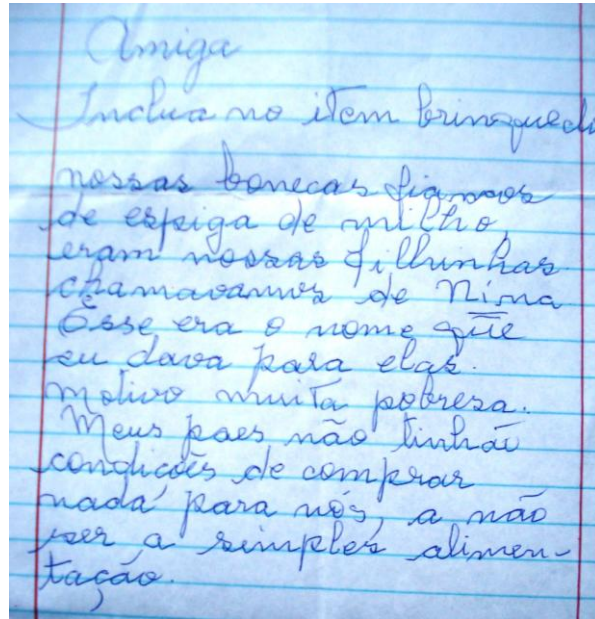 Amiga
Inclua no item brinquedo
nossas bonecas fiamos
de espiga de milho,
eram nossas filhinhas
chamavamos de Nina
Êsse era o nome que
eu dava para elas.
Motivo muita pobresa.
Meus paes não tinhão
condições de comprar
nada para nós, a não
ser a simples alimen-
tação.